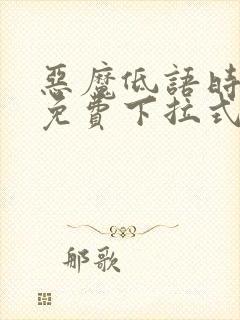 惡魔低語時
免費下拉式
郍歌